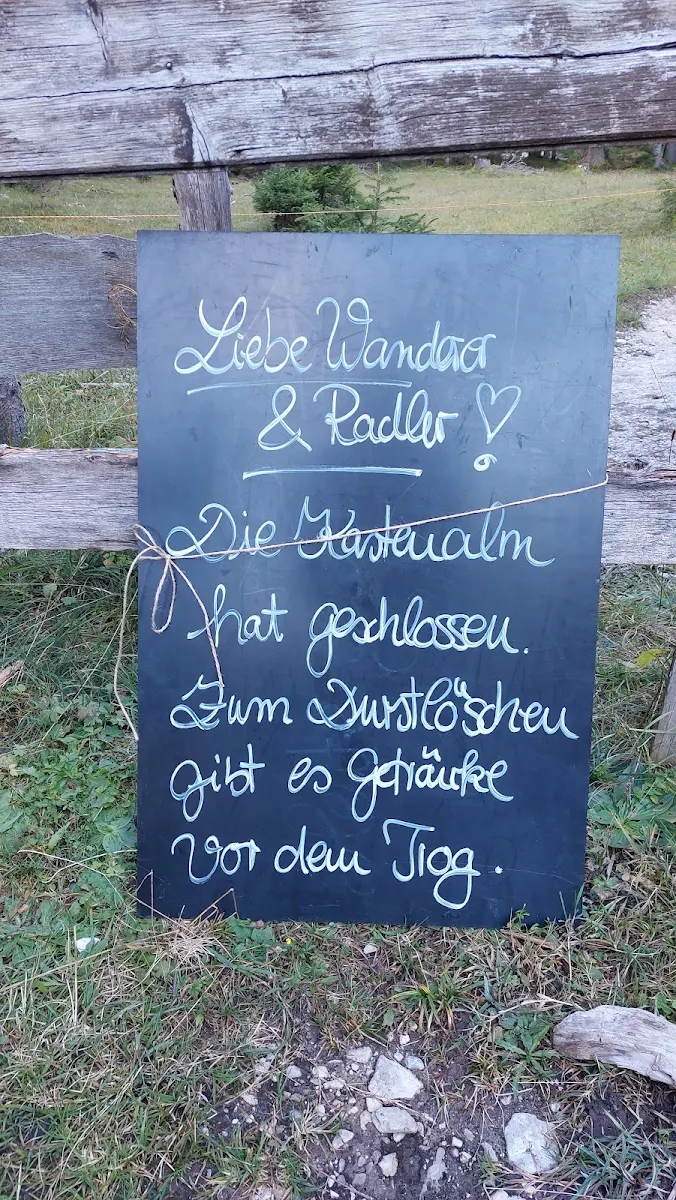 Liebe Wanderer
& Radler
Die Kastenalm
hat geschlossen.
Zum Durstlöschen
gibt es Getränke
vor dem Trog.